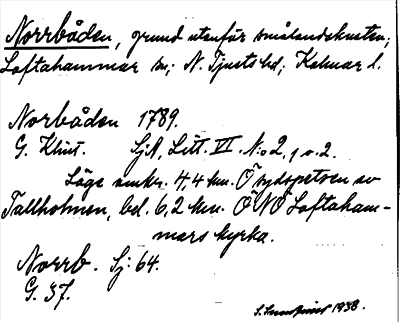 Norrbåden, grund utanför smålandskusten;
Loftahammar sn; N. Tjusts hd; Kalmar l.
Norbåden 1789.
G. Klint. SjA, Litt. VI. N:o 2, 1 o. 2.
Läge omkr. 4,4 km. Ö sydspetsen av
Tallholmen, bel. 6,2 km. ÖNÖ Loftaham-
mars kyrka.
Norrb. Sj: 64.
G. 37.
S. Sundqvist 1938.